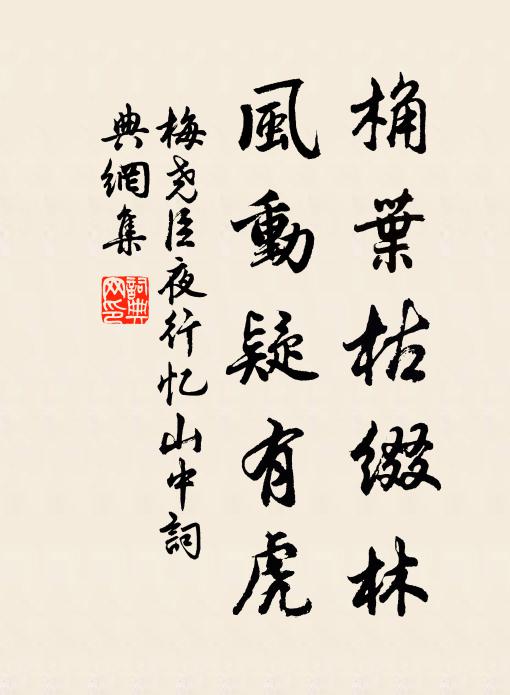 桷葉枯綴林
風動疑有虎
梅尧臣夜行忆山中詞
典網集
詞典
网印